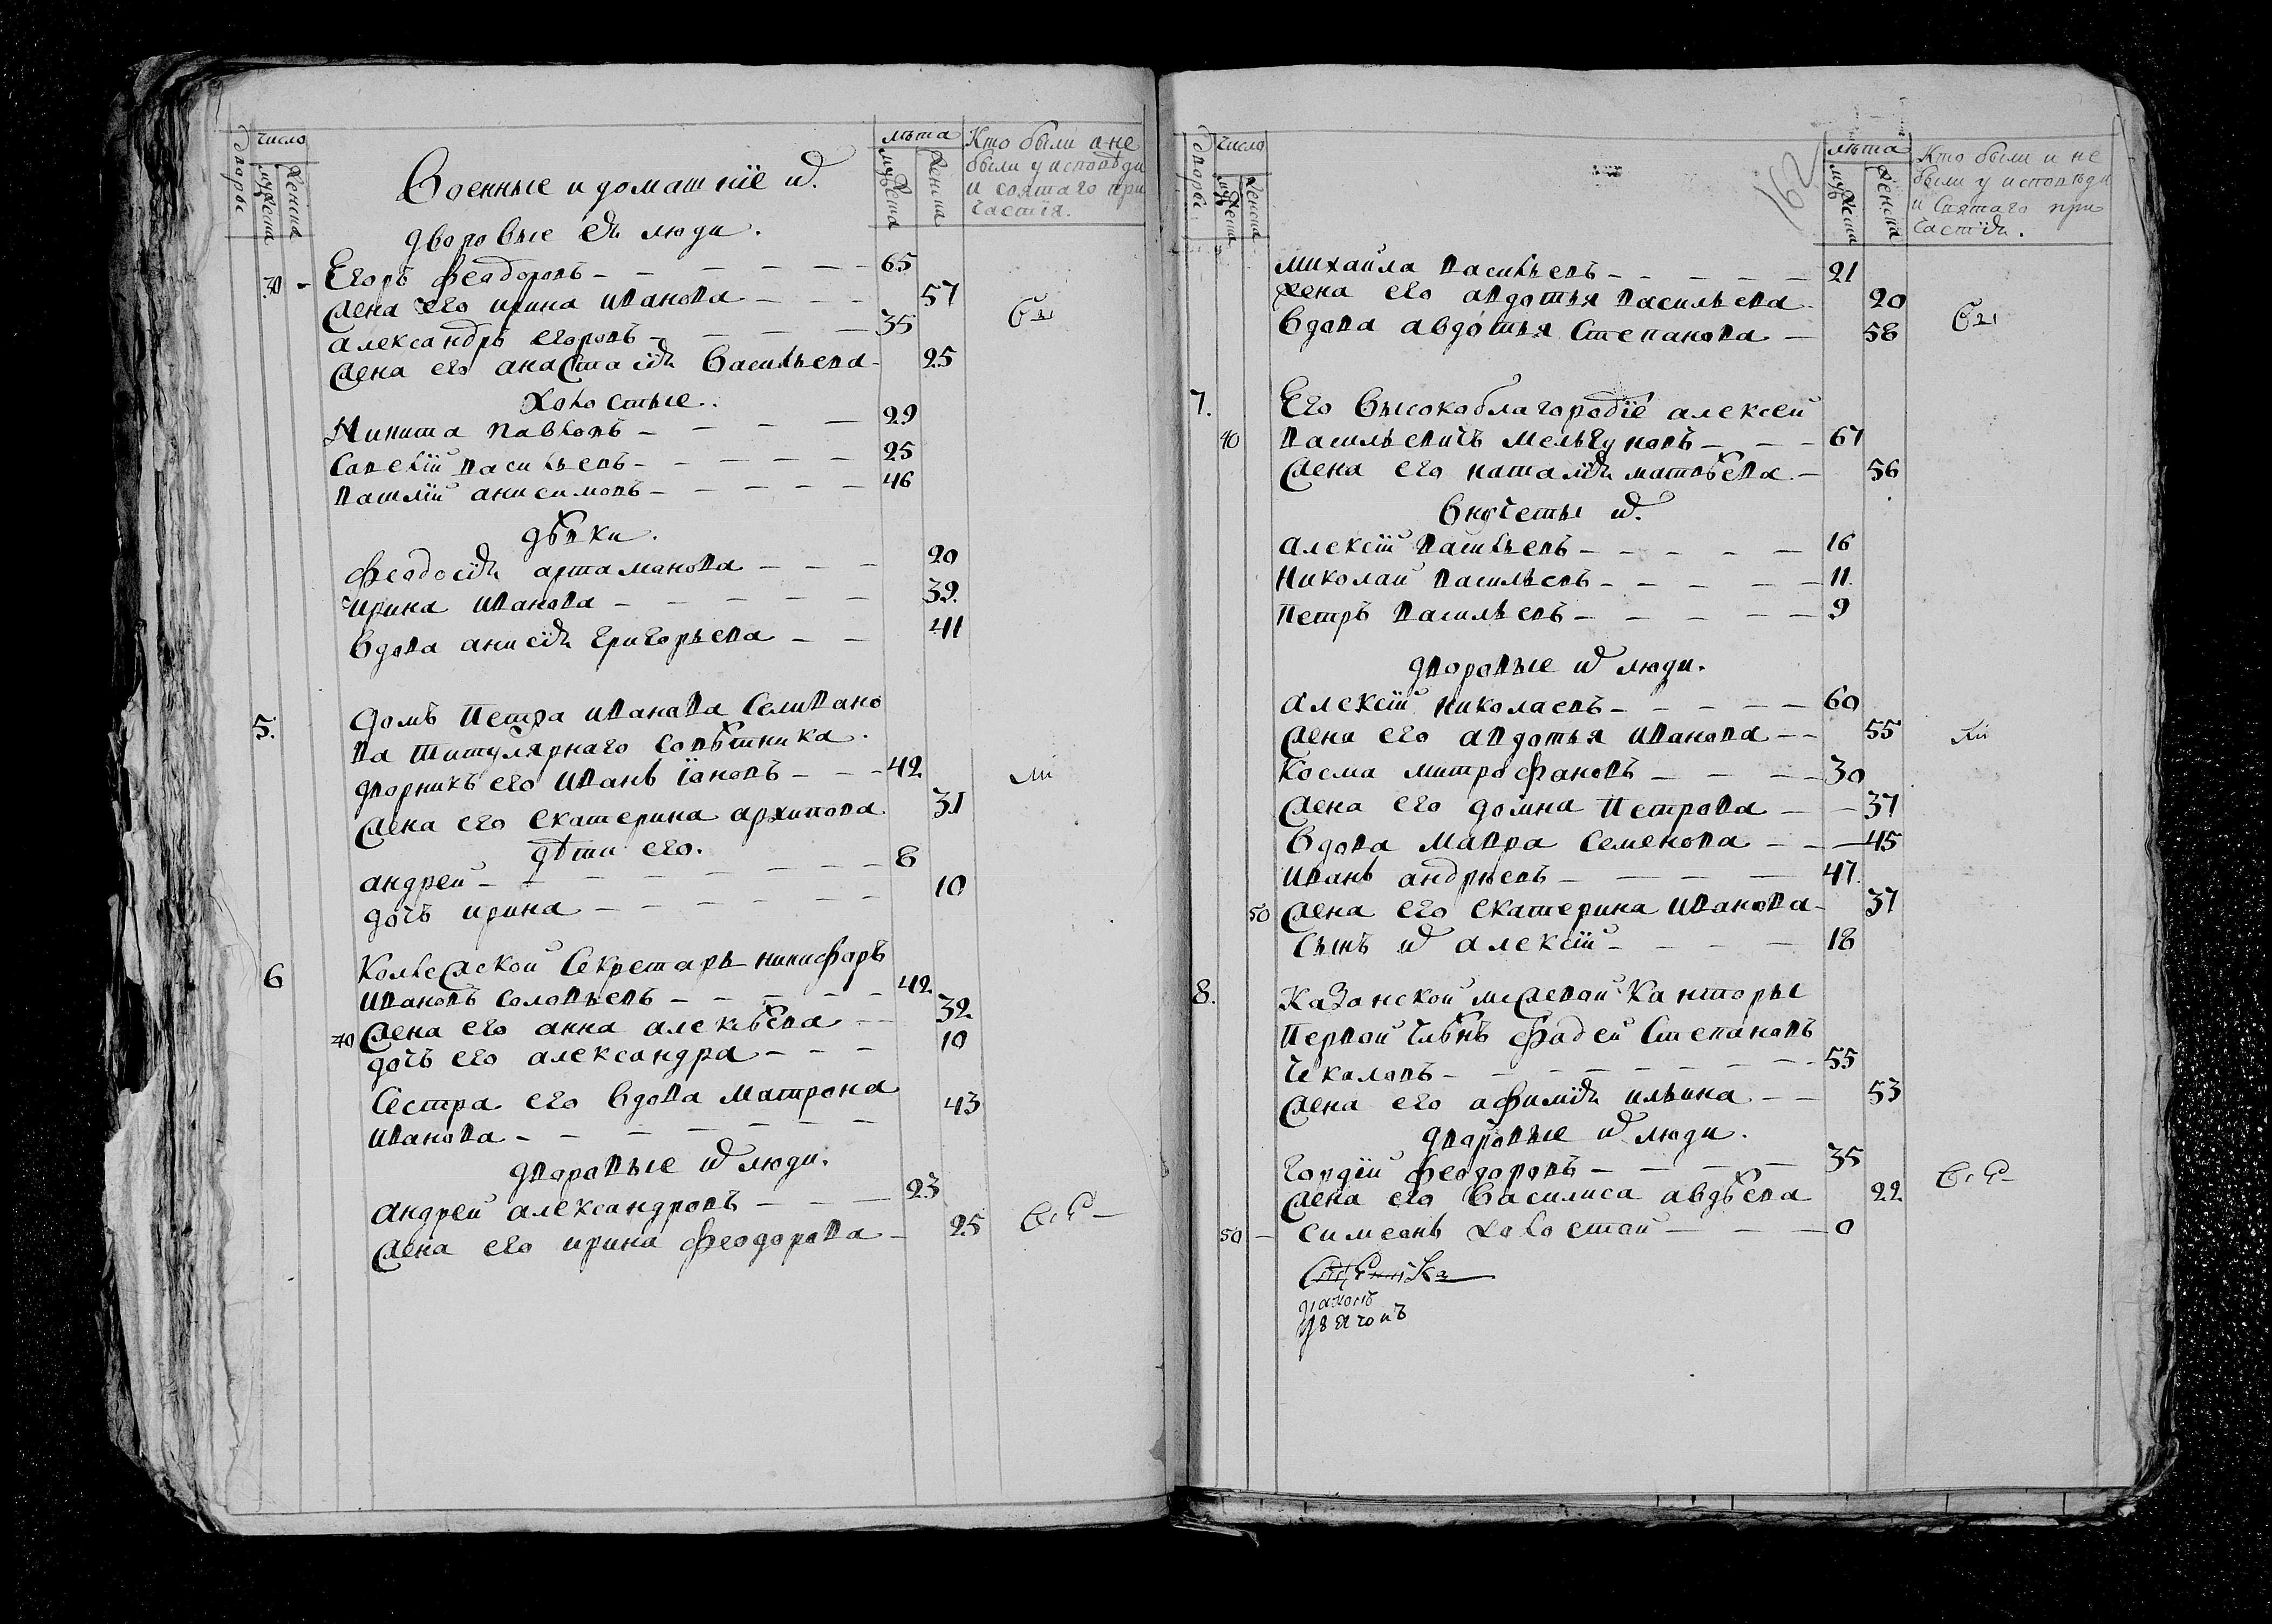 дворы
число
мужеска
женска
Военные и домашнїе ихъ
лѣта
мужеска
женска
Кто были и не
были у исповѣди
и святаго при
частїя.
дворовые ея люди.
30
Егоръ Феодоровъ 65
Жена его ирина иванова 57
александръ егоровъ 35
Жена его анастасїя Васильева 25
Холостые.
Никита павловъ 29
Савелїй васильевъ 25
василїй анисимовъ 46
дѣвки.
Феодосїя артамонова 20
ирина иванова 39
Вдова анисїя григорьева 41
5. Домъ Петра иванова Селивано
ва титулярнаго совѣтника.
дворникъ его иванъ 42
Жена его екатерина архипова 31
дѣти его.
андрей 8
дочь ирина 10
6 Колежской Секретарь никифоръ
ивановъ соловьевъ 42
40 Жена его анна алексѣева 32
дочь его александра 10
Сестра его вдова матрона 43
иванова
дворовые ихъ люди.
андрей александровъ 23
Жена его ирина феодорова 25
дворы
число
мужеска
женска
162
лѣта
мужеска
женска
Кто были и не
были у исповѣди
и Святаго при
частїя.
михайла васильевъ 21
жена его авдотья васильева 20
вдова авдотья Степанова 58
7. Его Высокоблагородїе алексей
40 васильевичъ мельгуновъ 67
Жена его наталїя матвѣева 56
Внучеты ихъ
алексїй васильевъ 16
Николай васильевъ 11.
Петръ васильевъ 9
дворовые ихъ люди.
алексїй николаевъ 60
Жена его авдотья иванова 55
Косма митрофановъ 30
Жена его домна Петрова 37
Вдова мавра Семенова 45
иванъ андрѣевъ 47.
50 Жена его екатерина иванова 37
сынъ ихъ алексїй 18
8. Казанской межевой Канторы
Первой члѣнъ Фадей Степановъ
Чекаловъ 55
Жена его афимїя ильина 53
дворовые ихъ люди.
Гордїй Феодоровъ 35
Жена его Василиса авдѣева 22
50 симеонъ холостой 0